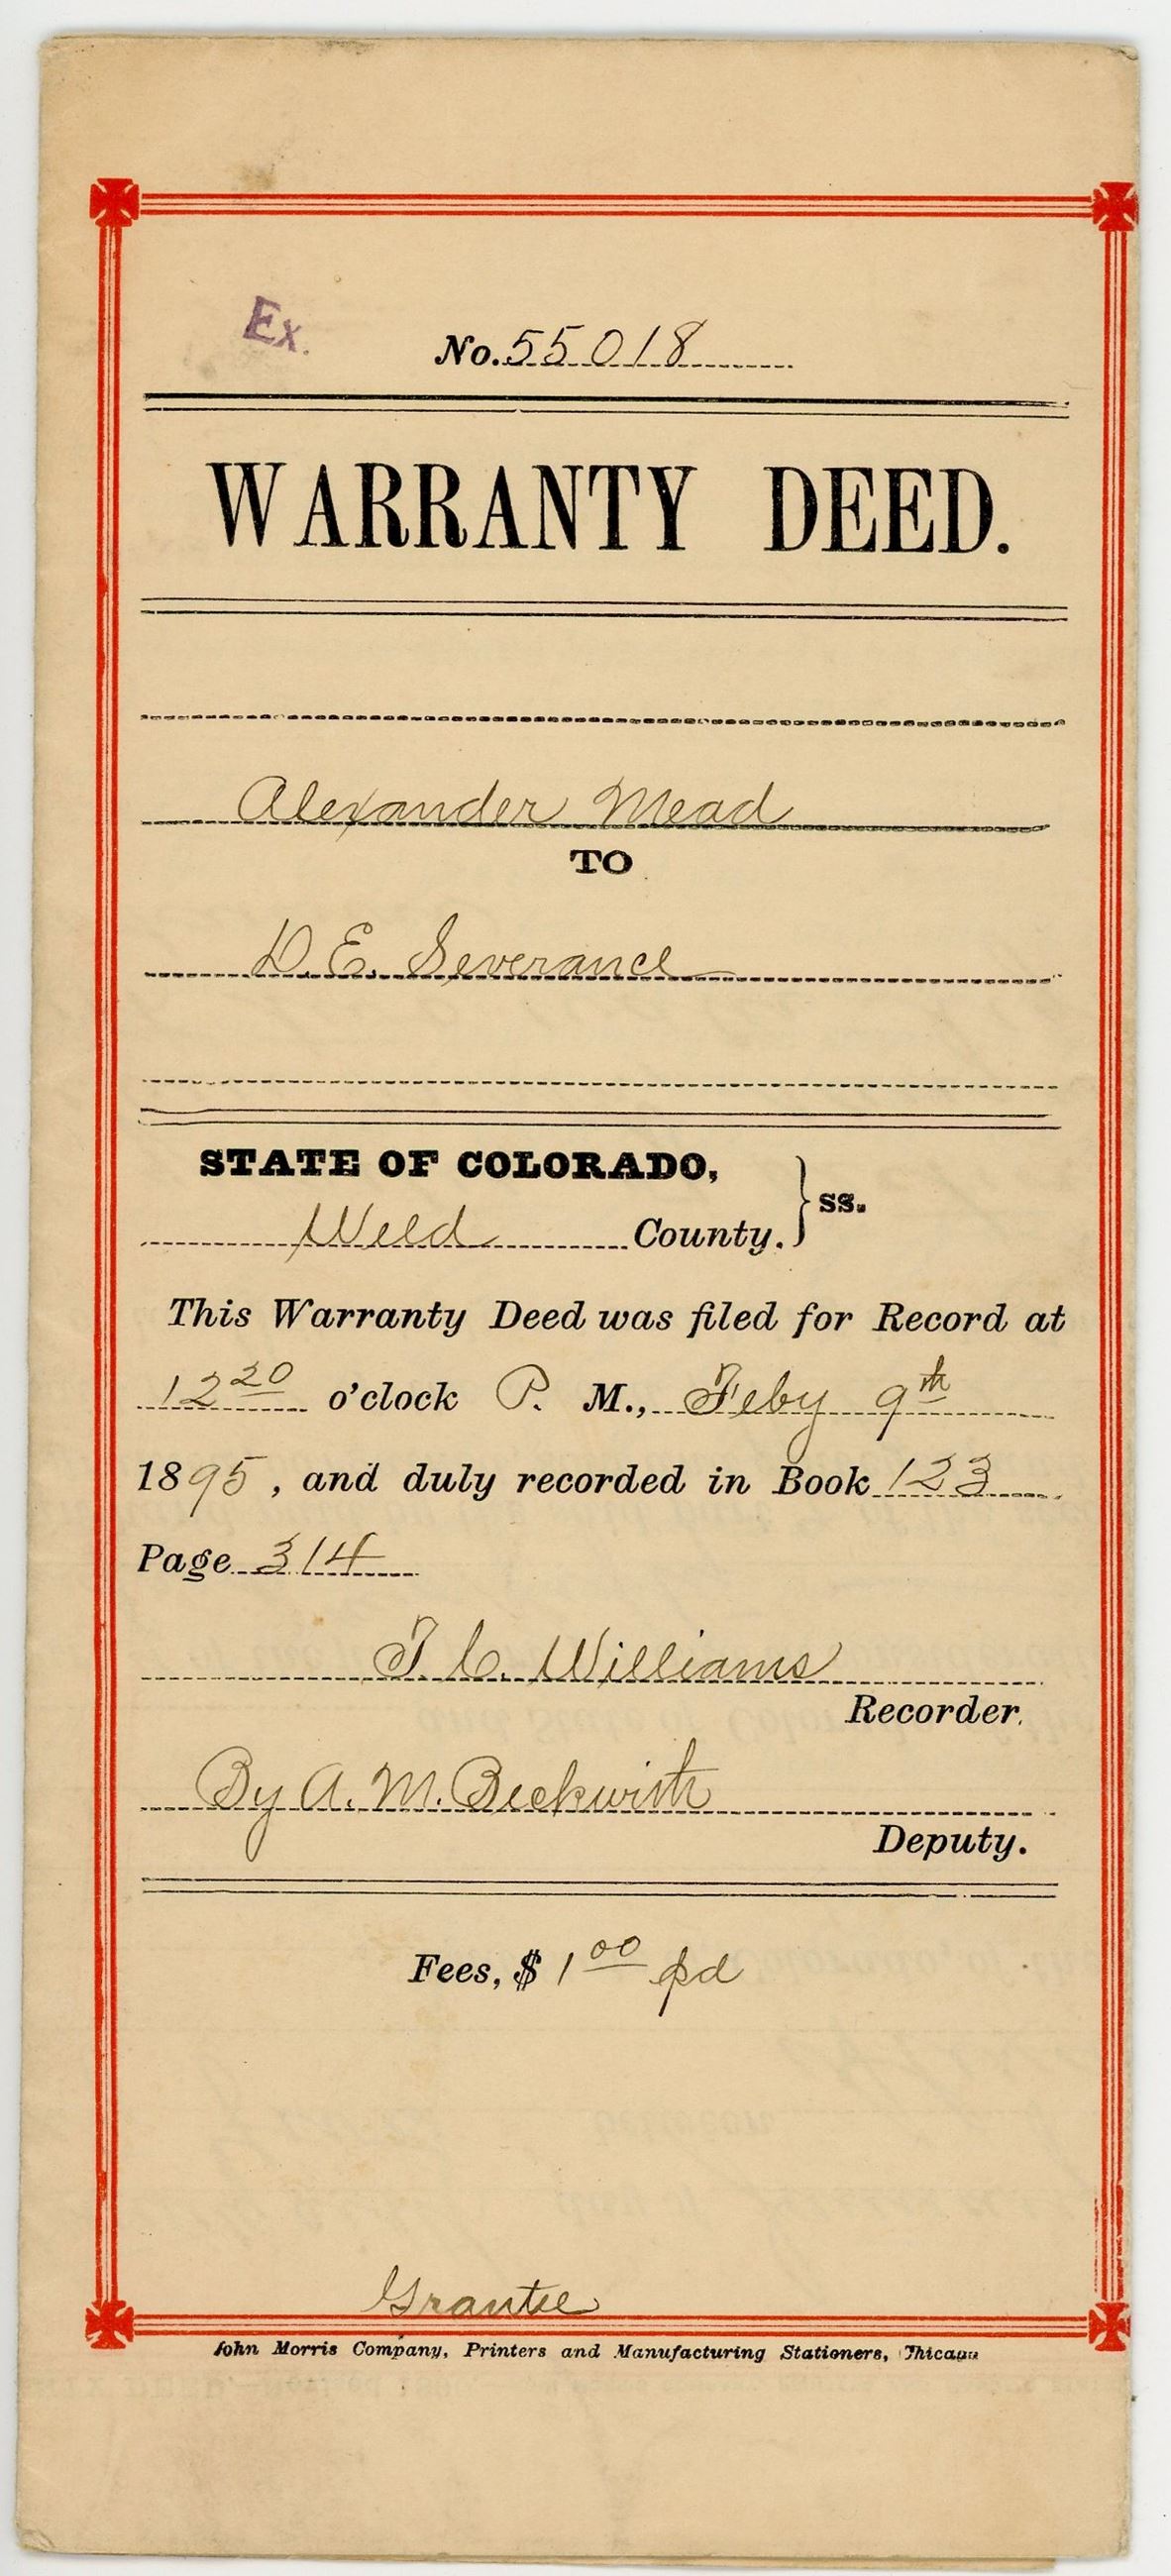 Ex.
No. 55018
WARRANTY DEED.
Alexander Mead
TO
D. E. Severance
STATE OF COLORADO,
Weld County. } ss.
This Warranty Deed was filed for Record at
12 20 o'clock P. M., Feby 9th
1895, and duly recorded in Book 123
Page 314
F. C. Williams
Recorder.
By A. M. Beckwith
Deputy.
Fees, $ 1 00 pd
Grantee
John Morris Company, Printers and Manufacturing Stationers, Chicago